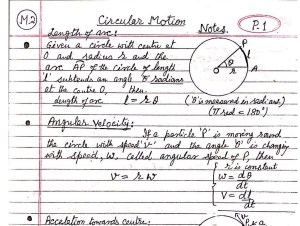 M.2 Circular Motion Notes. P.1
Length of arc:
Given a circle with centre at
O and radius r and the
arc AP of the circle of length
'l' subtends an angle θ radians
at the centre O, then
length of arc l = r θ
('θ' is measured in radians)
(π rad = 180°)
P
l
O θ r A
Angular Velocity:
If a particle 'P' is moving round
the circle with speed 'v' and the angle 'θ' is changing
with speed, w, called angular speed of P, then
v = r w
r is constant
w = dθ/dt
V = dl/dt
Accelation towards centre: